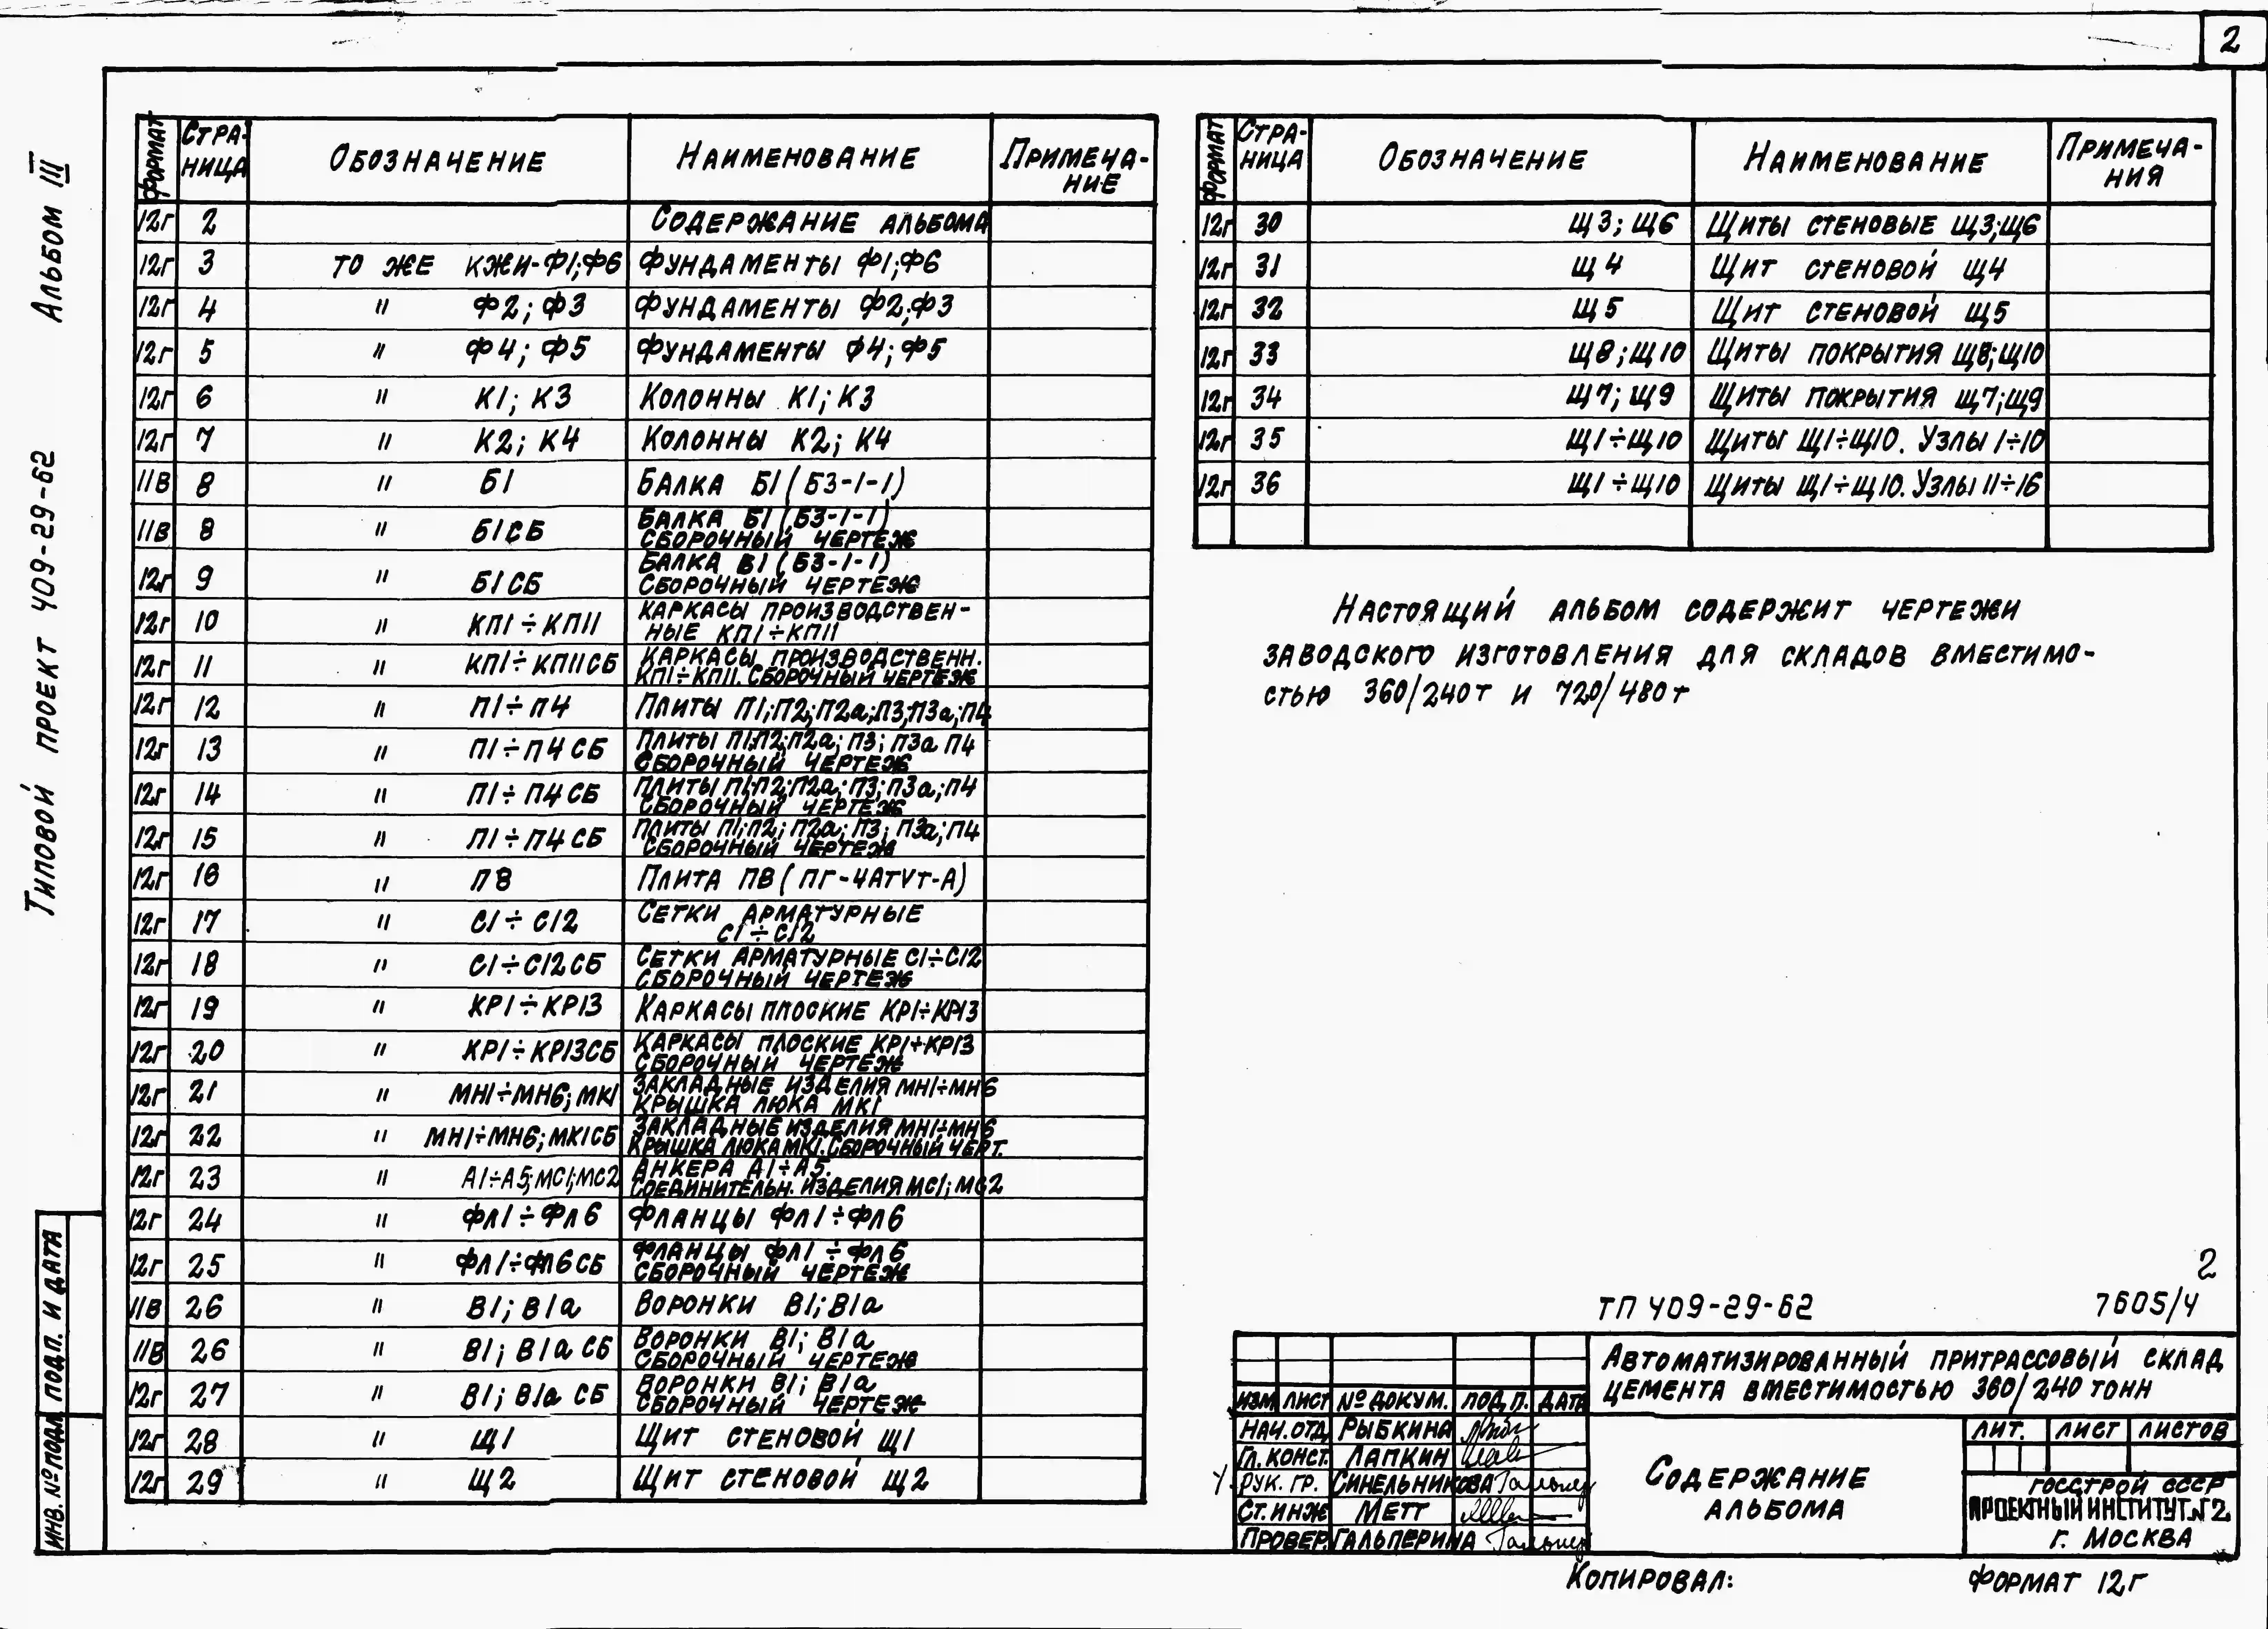 2
Альбом III
Типовой проект 409-29-62
Формат Страница Обозначение Наименование Примечание
12г 2 Содержание альбома
12г 3 то же КЖИ-Ф1;Ф6 Фундаменты Ф1;Ф6
12г 4 " Ф2; Ф3 Фундаменты Ф2;Ф3
12г 5 " Ф4; Ф5 Фундаменты Ф4; Ф5
12г 6 " К1; К3 Колонны К1; К3
12г 7 " К2; К4 Колонны К2; К4
11в 8 " Б1 Балка Б1 (Б3-1-1)
11в 8 " Б1СБ Балка Б1 (Б3-1-1)
Сборочный чертеж
12г 9 " Б1СБ Балка Б1 (Б3-1-1)
Сборочный чертеж
12г 10 " КП1÷КП11 Каркасы производствен-
ные КП1÷КП11
12г 11 " КП1÷КП11СБ Каркасы производственн.
КП1÷КП11. Сборочный чертеж
12г 12 " П1÷П4 Плиты П1;П2;П2а;П3;П3а;П4
12г 13 " П1÷П4СБ Плиты П1;П2;П2а; П3; П3а П4
Сборочный чертеж
12г 14 " П1÷П4СБ Плиты П1;П2;П2а; П3;П3а;П4
Сборочный чертеж
12г 15 " П1÷П4СБ Плиты П1;П2; П2а; П3; П3а;П4
Сборочный чертеж
12г 16 " П8 Плита П8 (ПГ-4АтVт-А)
12г 17 " С1÷С12 Сетки арматурные
С1÷С12
12г 18 " С1÷С12СБ Сетки арматурные С1÷С12
Сборочный чертеж
12г 19 " КР1÷КР13 Каркасы плоские КР1÷КР13
12г 20 " КР1÷КР13СБ Каркасы плоские КР1÷КР13
Сборочный чертеж
12г 21 " МН1÷МН6; МК1 Закладные изделия МН1÷МН6
Крышка люка МК1
12г 22 " МН1÷МН6; МК1СБ Закладные изделия МН1÷МН6
Крышка люка МК1. Сборочный черт.
12г 23 " А1÷А5;МС1;МС2 Анкера А1÷А5.
Соединительн. изделия МС1; МС2
12г 24 " Фл1÷Фл6 Фланцы Фл1÷Фл6
12г 25 " Фл1÷Фл6СБ Фланцы Фл1÷Фл6
Сборочный чертеж
11в 26 " В1; В1а Воронки В1; В1а
11в 26 " В1; В1а СБ Воронки В1; В1а
Сборочный чертеж
12г 27 " В1; В1а СБ Воронки В1; В1а
Сборочный чертеж
12г 28 " Щ1 Щит стеновой Щ1
12г 29 " Щ2 Щит стеновой Щ2
Формат Страница Обозначение Наименование Примечания
12г 30 Щ3; Щ6 Щиты стеновые Щ3;Щ6
12г 31 Щ4 Щит стеновой Щ4
12г 32 Щ5 Щит стеновой Щ5
12г 33 Щ8; Щ10 Щиты покрытия Щ8;Щ10
12г 34 Щ7; Щ9 Щиты покрытия Щ7;Щ9
12г 35 Щ1÷Щ10 Щиты Щ1÷Щ10. Узлы 1÷10
12г 36 Щ1÷Щ10 Щиты Щ1÷Щ10. Узлы 11÷16
Настоящий альбом содержит чертежи
заводского изготовления для складов вместимо-
стью 360/240т и 720/480т
2
ТП 409-29-62 7605/4
Автоматизированный притрассовый склад
цемента вместимостью 360/240 тонн
Изм Лист № докум. Подп. Дата
Нач.отд Рыбкина
Гл. конст. Лапкин
Рук. гр. Синельникова
Ст.инж Метт
Провер. Гальперина
Содержание
альбома
Лит. Лист Листов
Госстрой СССР
Проектный институт №2
г. Москва
Инв. № подл Подп. и дата
Копировал: Формат 12г